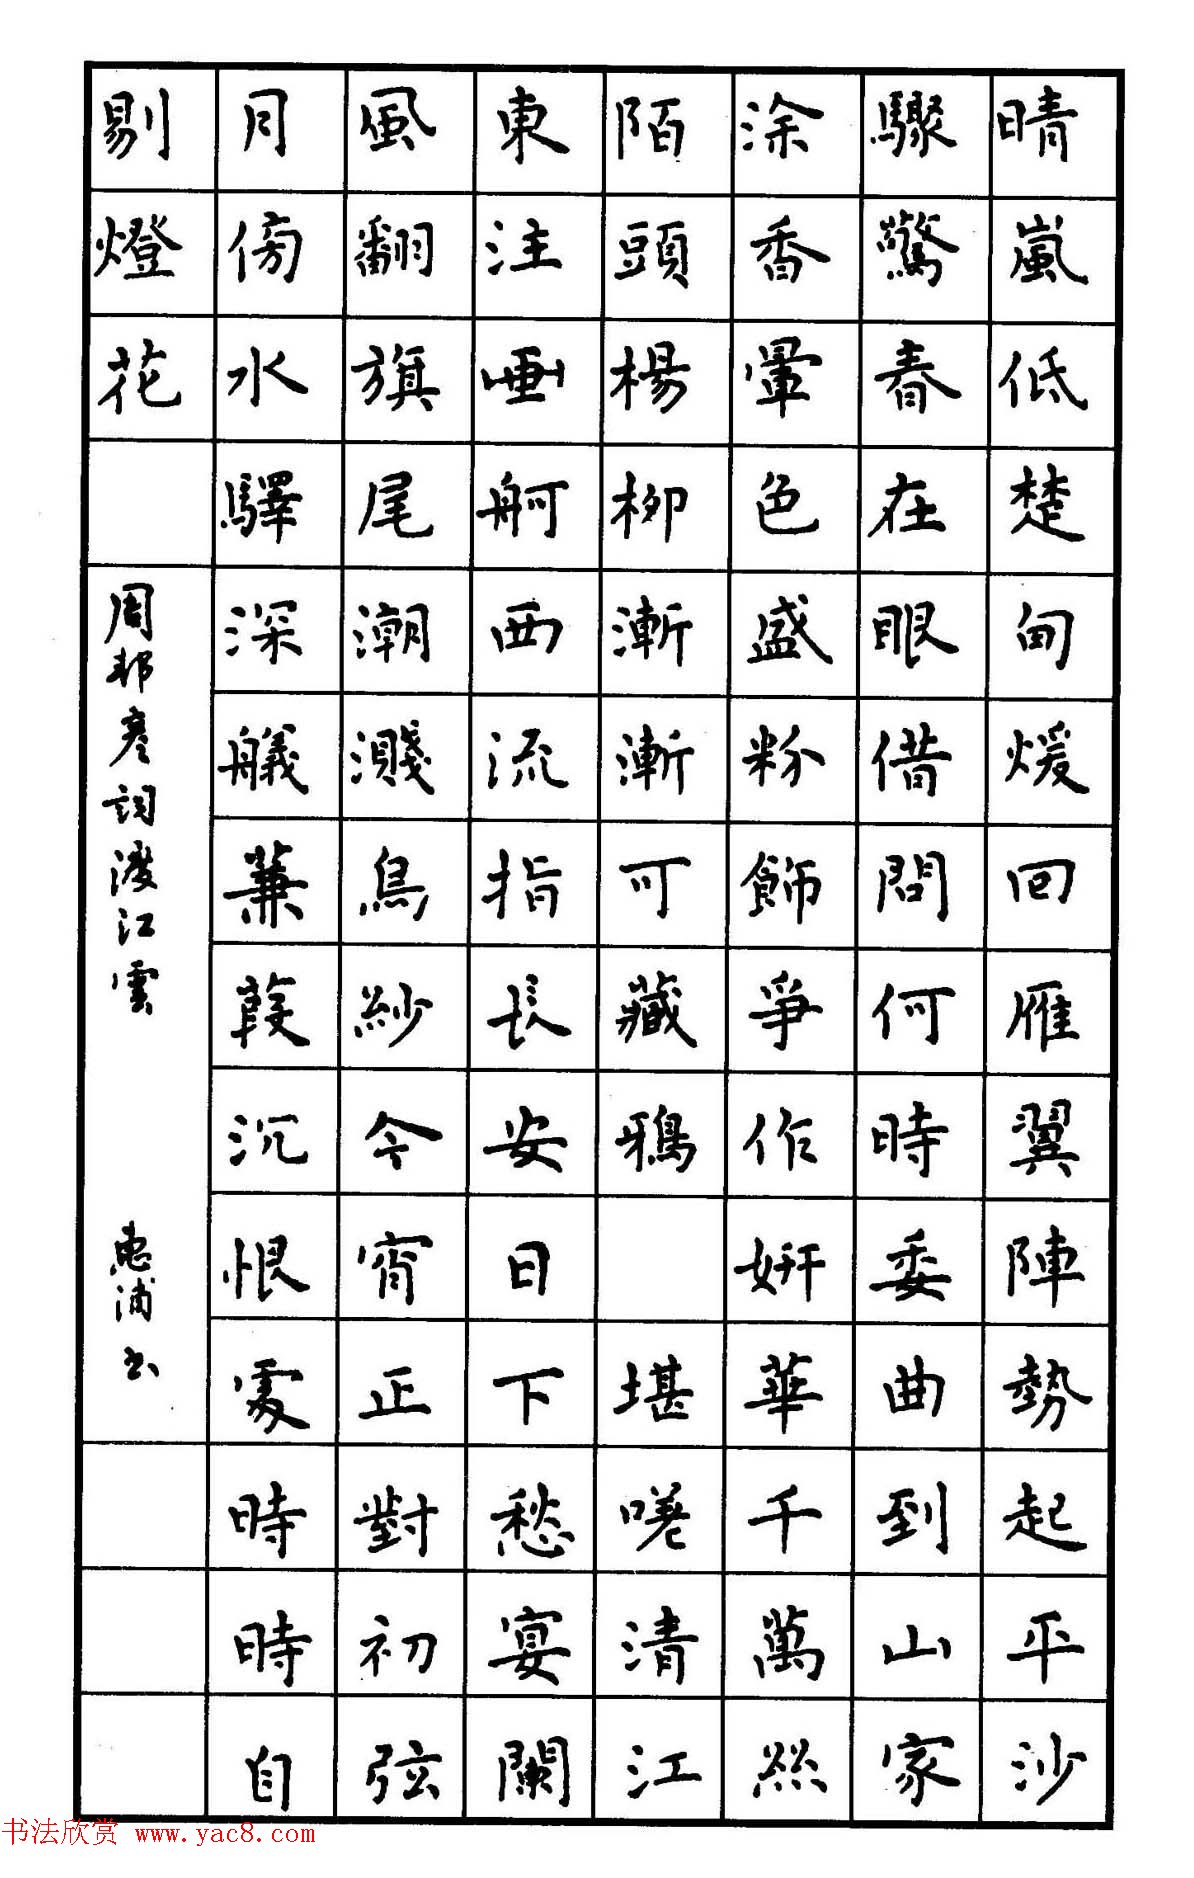 晴嵐低楚甸煖回雁翼陣勢起平沙
驟驚春在眼借問何時委曲到山家
涂香暈色盛粉飾爭作妍華千萬絲
陌頭楊柳漸漸可藏鴉 堪嗟清江
東注畫舸西流指長安日下愁宴闌
風翻旗尾潮濺烏紗今宵正對初弦
月傍水驛深艤蒹葭沉恨處時時自
剔燈花
周邦彥詞渡江雲 惠浦书
书法欣赏 www.yac8.com